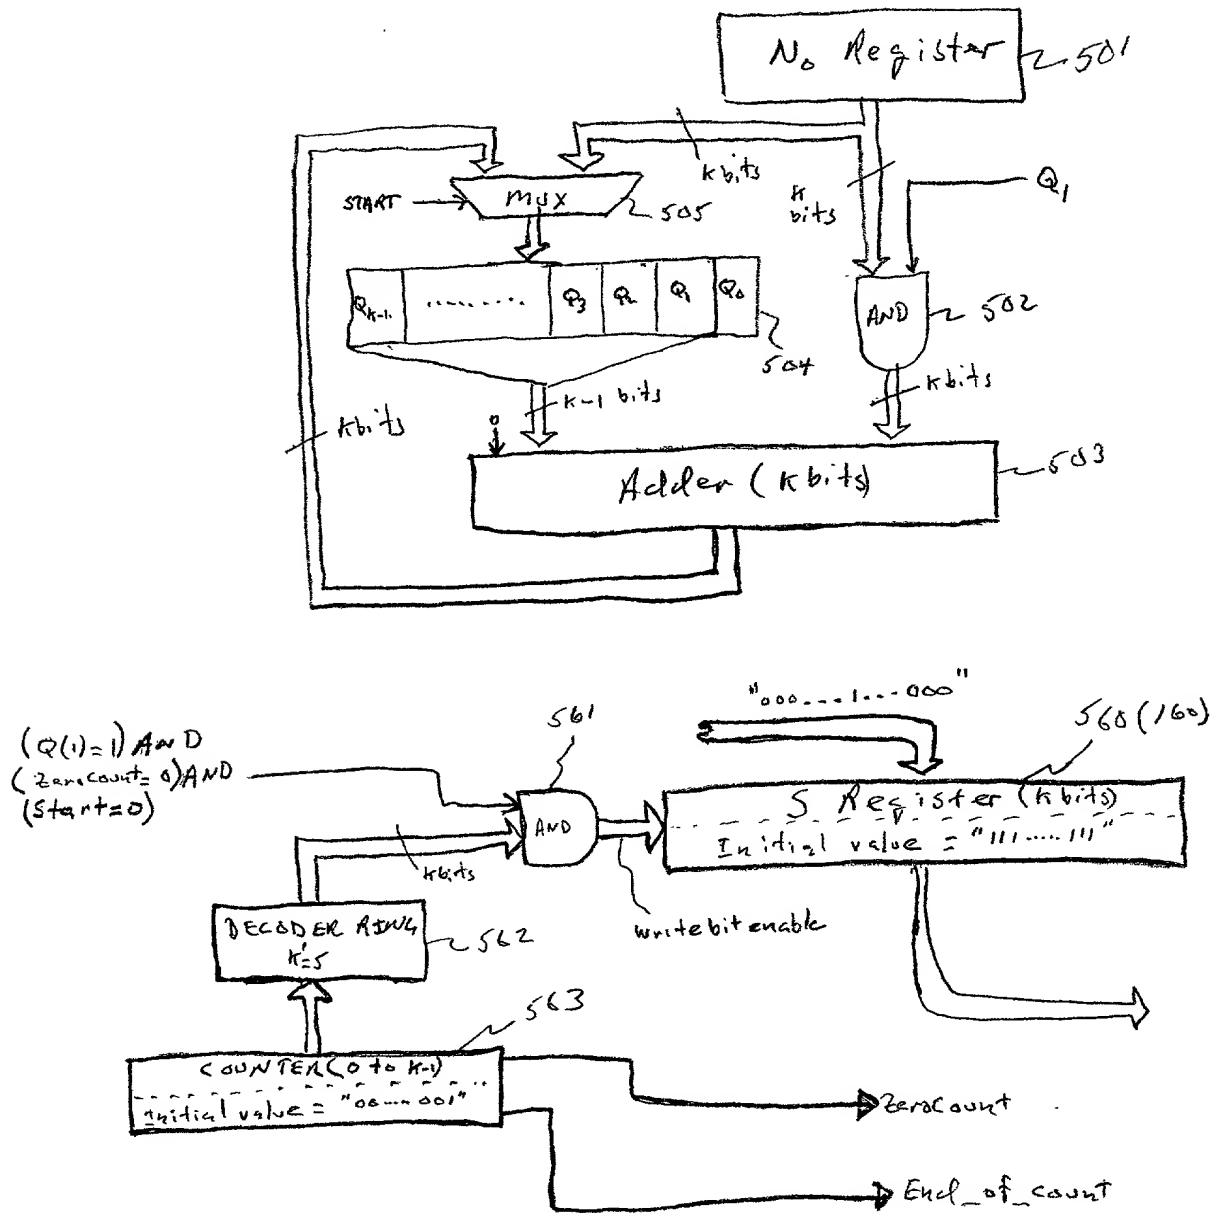 N₀ Register
501
K bits
K
bits
Q₁
START
MUX
505
Qₖ₋₁
.........
Q₃
Q₂
Q₁
Q₀
504
AND
502
K-1 bits
K bits
K bits
0
Adder (K bits)
503
"000...1...000"
561
560 (160)
(Q(1)=1) AND
(Zerocount=0) AND
(Start=0)
AND
S Register (K bits)
Initial value = "111.....111"
K bits
write bit enable
DECODER RING
562
563
COUNTER (0 to K-1)
Initial value = "00....001"
ZeroCount
End_of_count